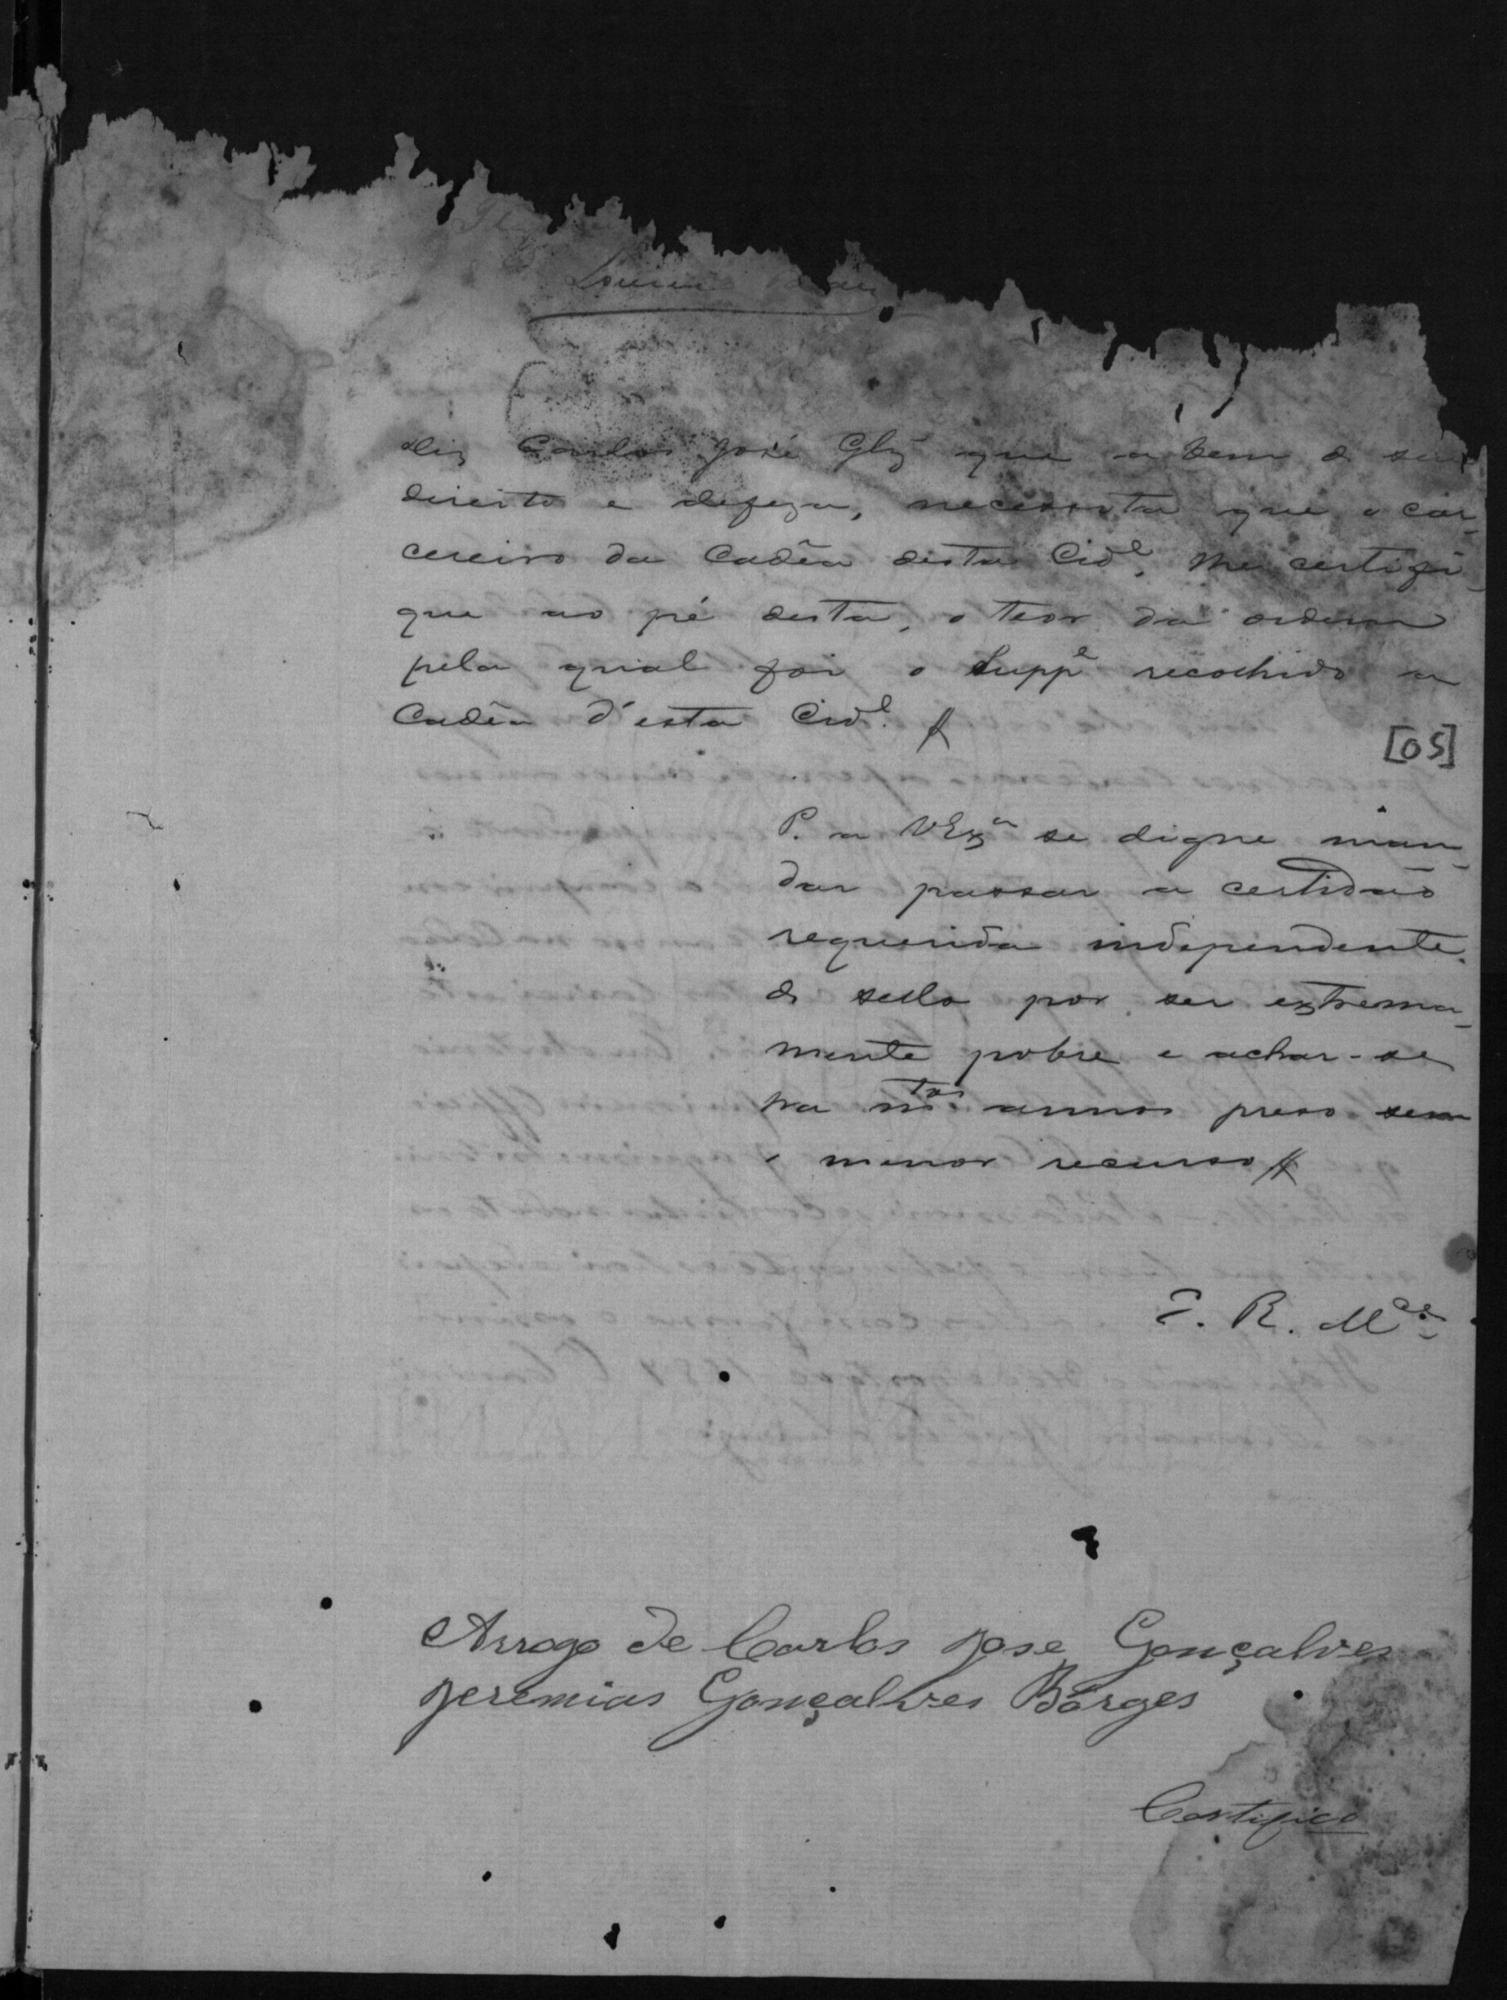 Diz Carlos José Glz que a bem de seu
direito e defeza, necessita que o car-
cereiro da Cadêa desta Cidl. me certifi-
que ao pé desta, o teor da ordem
pela qual foi o Suppe recolhido a
Cadêa d'esta Cidl.
[05]
P. a VExa se digne man-
dar passar a certidão
requerida independente.
de sello por ser extrema-
mente pobre e achar-se
ha mtos annos preso sem
o menor recurso
E. R. Mce
Arrogo de Carlos Jose Gonçalves
Jeremias Gonçalves Borges
Certifico